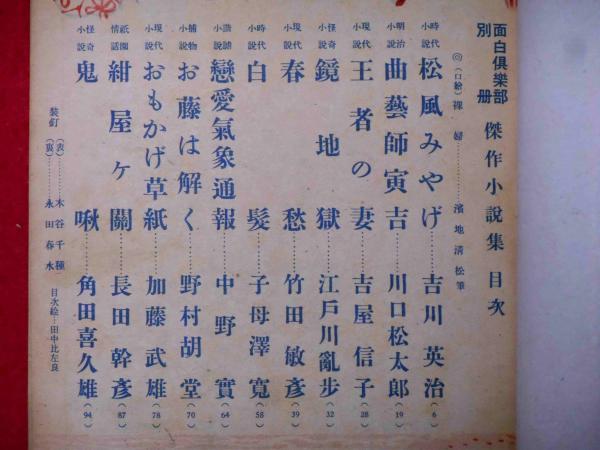 面白倶樂部
別冊 傑作小說集 目次
◎(口繪)裸婦………濱地淸松筆
時代小說 松風みやげ……吉川英治(6)
明治小說 曲藝師寅吉……川口松太郎(19)
現代小說 王者の妻……吉屋信子(28)
怪奇小說 鏡地獄……江戶川亂步(32)
現代小說 春愁……竹田敏彥(39)
時代小說 白髮……子母澤寬(58)
諧謔小說 戀愛氣象通報……中野實(64)
捕物小說 お藤は解く……野村胡堂(70)
現代小說 おもかげ草紙……加藤武雄(78)
祇園情話 紺屋ヶ關……長田幹彥(87)
怪奇小說 鬼啾……角田喜久雄(94)
裝釘 (表)……木谷千種
(裏)……永田春水
目次絵…田中比左良